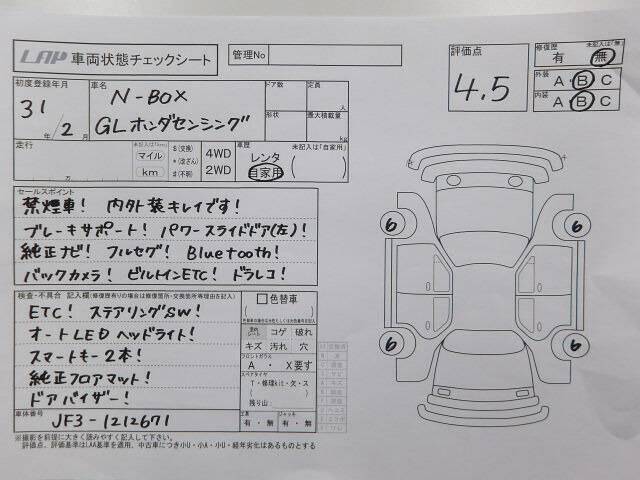 LAP 車両状態チェックシート
管理No
評価点
4.5
修復歴 未記入は「無」
有 無
外装 A・B C
内装 A・B C
初度登録年月
31年 2月
車名
N-BOX
GLホンダセンシング
ドア数 定員 人
形状 最大積載量 kg
走行 万
未記入は「km」
マイル
km
$(交換)
*(改ざん)
#(不明)
4WD
2WD
車歴 未記入は「自家用」
レンタ
自家用
( )
セールスポイント
禁煙車! 内外装キレイです!
ブレーキサポート! パワースライドドア(左)!
純正ナビ! フルセグ! Bluetooth!
バックカメラ! ビルトインETC! ドラレコ!
検査・不具合 記入欄(修復歴有りの場合は修復箇所・交換箇所等理由を記入)
ETC! ステアリングSW!
オートLEDヘッドライト!
スマートキー2本!
純正フロアマット!
ドアバイザー!
色替車
( )
コゲ 破れ
キズ 汚れ 穴
フロントガラス
A ・ X要す
スペアタイヤ
T・修理kit・欠・ス
残り山
( )
車体番号
JF3-1212671
工具
有・無
ジャッキ
有・無
6
6
6
6
※撮影を前提に大きく読みやすく記入して下さい。
評価点、評価基準はLAA基準を適用、中古車につき小U・小A・小U・経年劣化はあるものとする